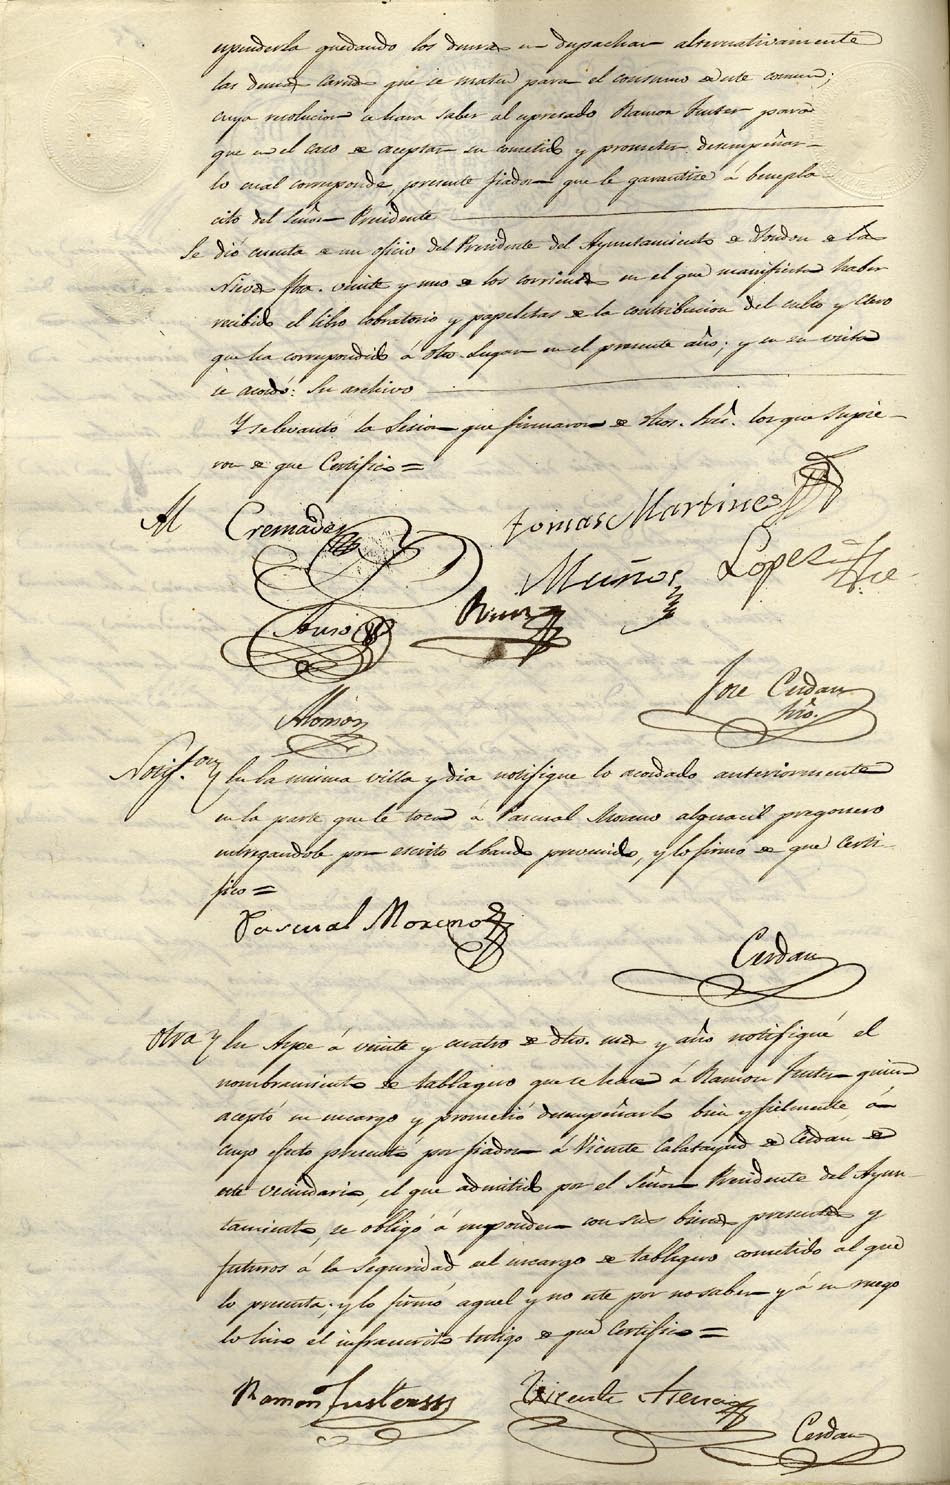 espenderla quedando los demas en despachar alternativamente
las demas carnes que se maten para el consumo de este comun;
cuya resolucion se hará saber al espresado Ramon Juster para
que en el caso de aceptar su cometido y prometer desempeñar-
lo cual corresponde, presente fiador que le garantice á benepla-
cito del Señor Presidente
Se dió cuenta de un oficio del Presidente del Ayuntamiento de Hondon de las
Nieves fha. veinte y uno de los corrientes en el que manifiesta haber
recibido el libro cobratorio y papeletas de la contribucion del culto y clero
que ha correspondido á dho. Lugar en el presente año; y en su vista
se acordó: Su archivo
Y se levantó la Sesion que firmaron de dhos. Sres. los que supie-
ron de que Certifico =
Al Cremades Tomas Martinez
Muños Lopez
Auso
Alonso
Jose Cerdan
Srio.
Notif.on En la misma villa y dia notifique lo acordado anteriormente
en la parte que le toca á Pascual Moreno alguacil pregonero
entregandole por escrito el bando prevenido, y lo firmó de que Certi-
fico =
Pascual Moreno
Cerdan
Otra En Aspe á veinte y cuatro de dho. mes y año notifiqué el
nombramiento de tablagero que se hace á Ramon Juster quien
aceptó su encargo y prometió desempeñarlo bien y fielmente, á
cuyo efecto presentó por fiador á Vicente Calatayud de Cerdan de
este vecindario, el que admitido por el Señor Presidente del Ayun-
tamiento, se obligó á responder con sus bienes presentes y
futuros á la seguridad del encargo de tablagero cometido al que
lo presenta. y lo firmó aquel y no este por no saber y á su ruego
lo hizo el infraescrito testigo de que Certifico =
Ramon Juster Vicente
Cerdan